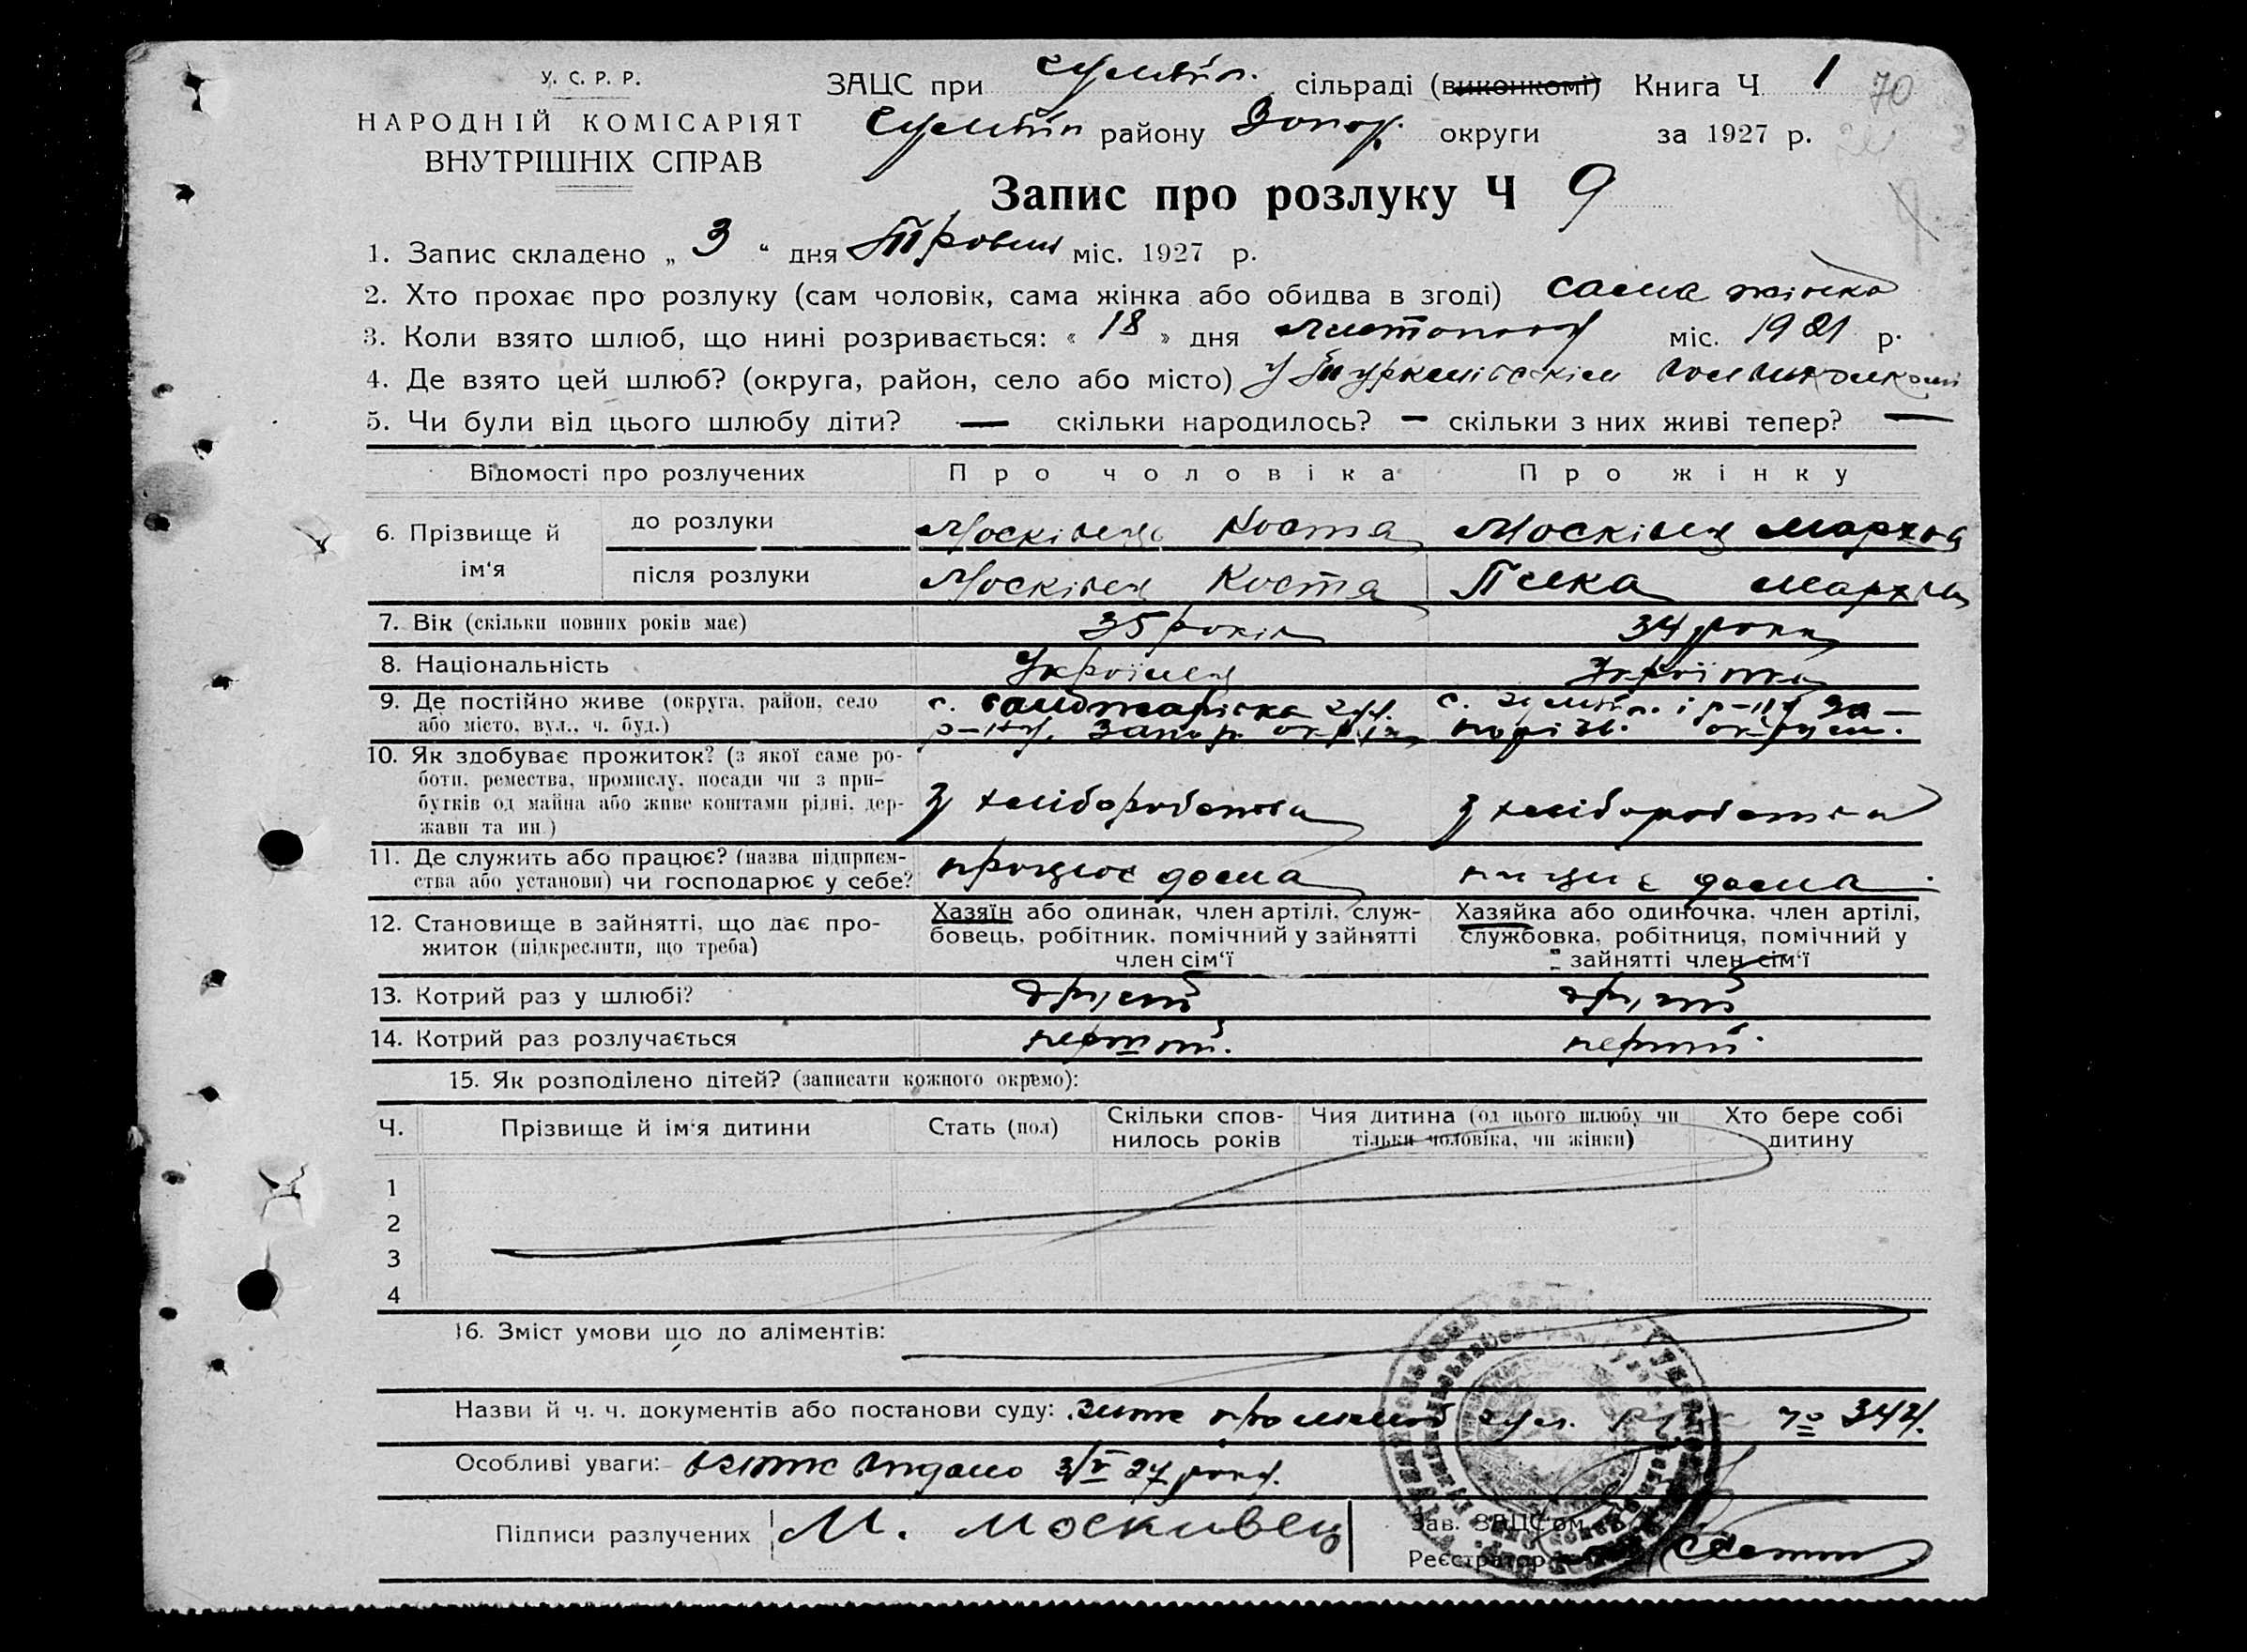 У. С. Р. Р.
НАРОДНІЙ КОМІСАРІЯТ
ВНУТРІШНІХ СПРАВ
ЗАЦС при сільраді (виконкомі) Книга Ч 1 70
району Запор. округи за 1927 р.
Запис про розлуку Ч 9
1. Запис складено „ 3 “ дня Травня міс. 1927 р.
2. Хто прохає про розлуку (сам чоловік, сама жінка або обидва в згоді) сама жінка
3. Коли взято шлюб, що нині розривається: « 18 » дня листопада міс. 1921 р.
4. Де взято цей шлюб? (округа, район, село або місто) у
5. Чи були від цього шлюбу діти? — скільки народилось? — скільки з них живі тепер? —
Відомості про розлучених Про чоловіка Про жінку
6. Прізвище й ім‘я
до розлуки Москівець Коста Москівец Мархва
після розлуки Москівец Коста Мархва
7. Вік (скільки повних років має) 35 років 34 роки
8. Національність Українец Українка
9. Де постійно живе (округа, район, село
або місто, вул., ч. буд.)
с. р-ну, Запор. округи
с. і р-ну За-
поріз. округи.
10. Як здобуває прожиток? (з якої саме ро-
боти, ремества, промислу, посади чи з при-
бутків од майна або живе коштами рідні, дер-
жави та ин.)
З хліборобства З хліборобства
11. Де служить або працює? (назва підприєм-
ства або установи) чи господарює у себе?
працює дома працює дома
12. Становище в зайнятті, що дає про-
житок (підкреслити, що треба)
Хазяїн або одинак, член артілі, служ-
бовець, робітник, помічний у зайнятті
член сім‘ї
Хазяйка або одиночка, член артілі,
службовка, робітниця, помічний у
зайнятті член сім‘ї
13. Котрий раз у шлюбі? другий другий
14. Котрий раз розлучається перший. перший.
15. Як розподілено дітей? (записати кожного окремо):
Ч. Прізвище й ім‘я дитини Стать (пол) Скільки спов-
нилось років Чия дитина (од цього шлюбу чи
тільки чоловіка, чи жінки) Хто бере собі
дитину
1
2
3
4
16. Зміст умови що до аліментів:
Назви й ч. ч. документів або постанови суду: № 344.
Особливі уваги: видано 3/V 27 року.
Підписи разлучених М. Москивец
Зав. ЗАЦС‘ом
Реєстратор